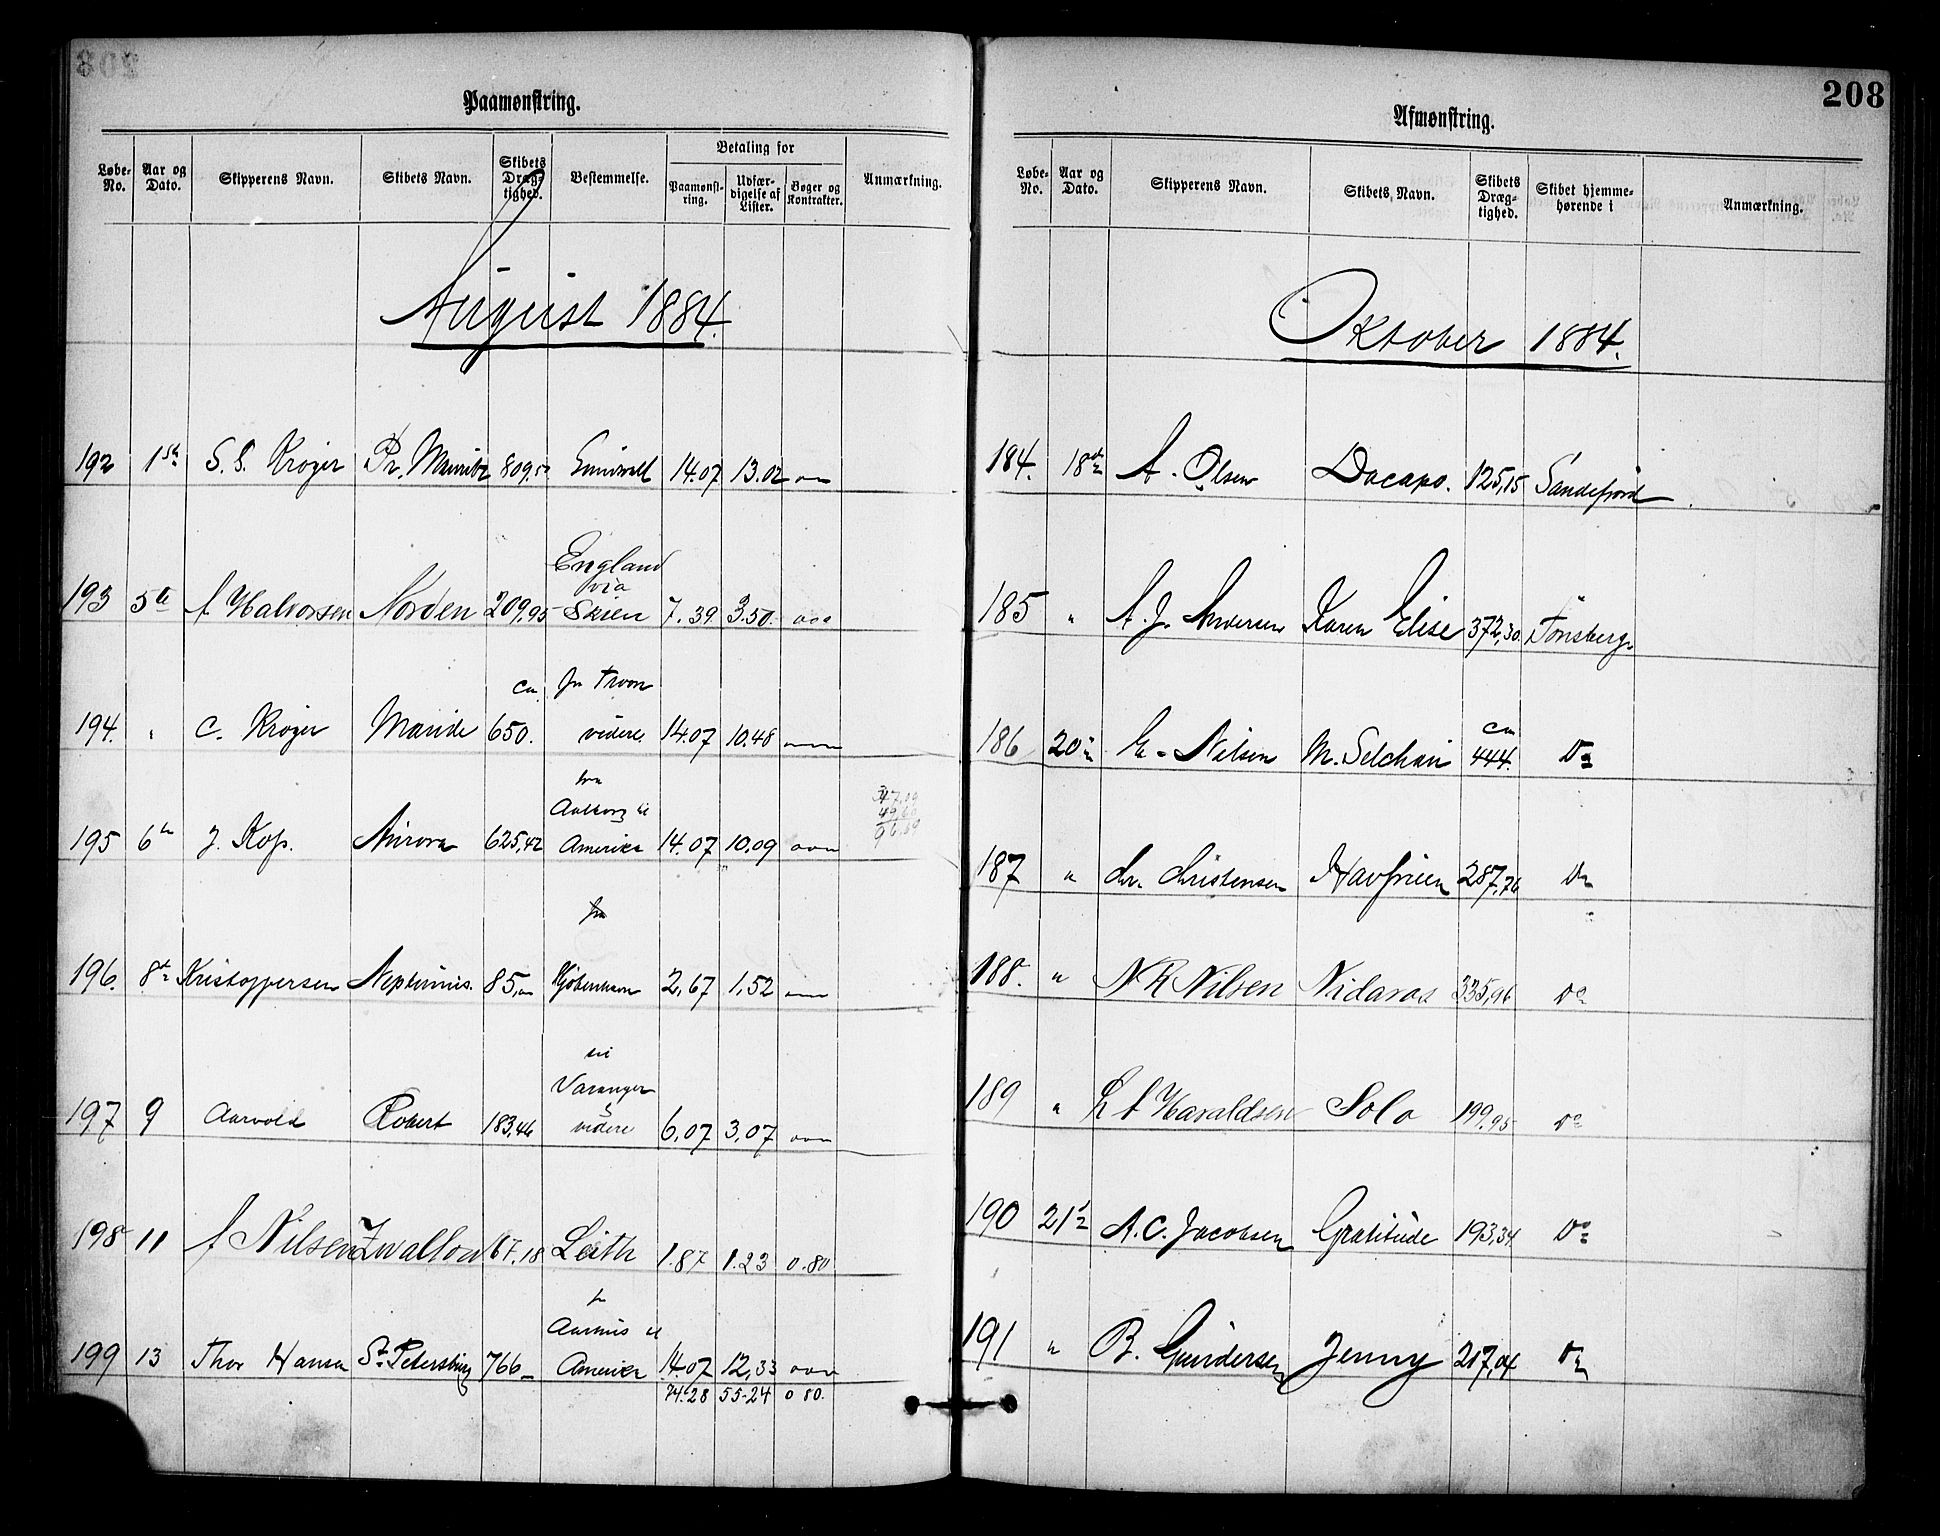 208
Paamønstring.
Løbe-No. Aar og Dato. Skipperens Navn. Skibets Navn. Skibets Dræg-tighed. Bestemmelse. Betaling for Paamønst-ring. Udfær-digelse af Lister. Bøger og Kontrakter. Anmærkning.
August 1884.
192 1ste S. S. Krøger Pr. Mauritz 809, 14.07 13.02
England
via
193 5te A Halvorsen Norden 209,95 Skien 7.39 3.50.
ca fra
194. " C. Krøger 650. videre 14.07 10.48
fra
Aalborg til
195 6te J. Kop. Aurora 625,42 Amerika 14.07 10.09
347,09
49,60
96,69
fra
196. 8de Kristoppersen Neptunus. 85, Kjøbenhavn 2,67 1,52
til
Varanger
197 9 Aarvold Robert 183,46 videre 6,07 3,07
198 11 A Nilsen Zwallow 67,18 Leith 1.87 1.23 0.80
fr
Aarhus til
199 13 Thor Hansen St. Petersburg 766 Amerika 14.07 12,33
74.28 55-24 0 80.
208
Afmønstring.
Løbe-No. Aar og Dato. Skipperens Navn. Skibets Navn. Skibets Dræg-tighed. Skibet hjemme-hørende i Anmærkning.
Oktober 1884.
184. 18de A. Olsen Dacapo. 125,15 Sandefjord
185 " A. J. Andersen Karen Elise 372,30. Tønsberg
ca
186 20de E. Nilsen M. Selchau 444. Do
187 " Chr. Christensen Havfruen 287,76 Do
188. " N R Nilsen Nidaros 335,96 Do
189 " L A Haraldsen Solo 199,95 Do
190 21de A. C. Jacobsen Gratitude 193,34 Do
191 " B. Gundersen Jenny 217,04 Do